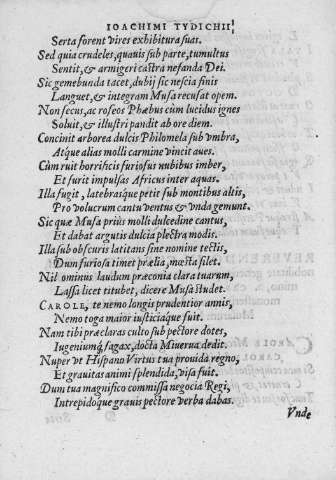 IOACHIMI TYDICHII
Serta forent vires exhibitura suas.
Sed quia crudeles, quauis sub parte, tumultus
Sentit, & armigeri castra nefanda Dei.
Sic gemebunda tacet, dubij sic nescia finis
Languet, & integram Musa recusat opem.
Non secus, ac roseos Phœbus cùm lucidus ignes
Soluit, & illustri pandit ab ore diem.
Concinit arborea dulcis Philomela sub vmbra,
Atque alias molli carmine vincit aues.
Cùm ruit horrificis furiosus nubibus imber,
Et furit impulsas Africus inter aquas.
Illa fugit, latebrasque petit sub montibus altis,
Pro volucrum cantu ventus & vnda gemunt.
Sic quæ Musa priùs molli dulcedine cantus,
Et dabat argutis dulcia plectra modis.
Illa sub obscuris latitans sine nomine tectis,
Dum furiosa timet prælia, mœsta silet.
Nil ominus laudum præconia clara tuarum,
Lassa licet titubet, dicere Musa studet.
CAROLE, te nemo longis prudentior annis,
Nemo toga maior iusticiaque fuit.
Nam tibi præclaras culto sub pectore dotes,
Iugeniumq́ sagax, docta Miuerua dedit.
Nuper vt Hispano Virtus tua prouida regno,
Et grauitas animi splendida, visa fuit.
Dum tua magnifico commissa negocia Regi,
Intrepidoque grauis pectore verba dabas.
Vnde